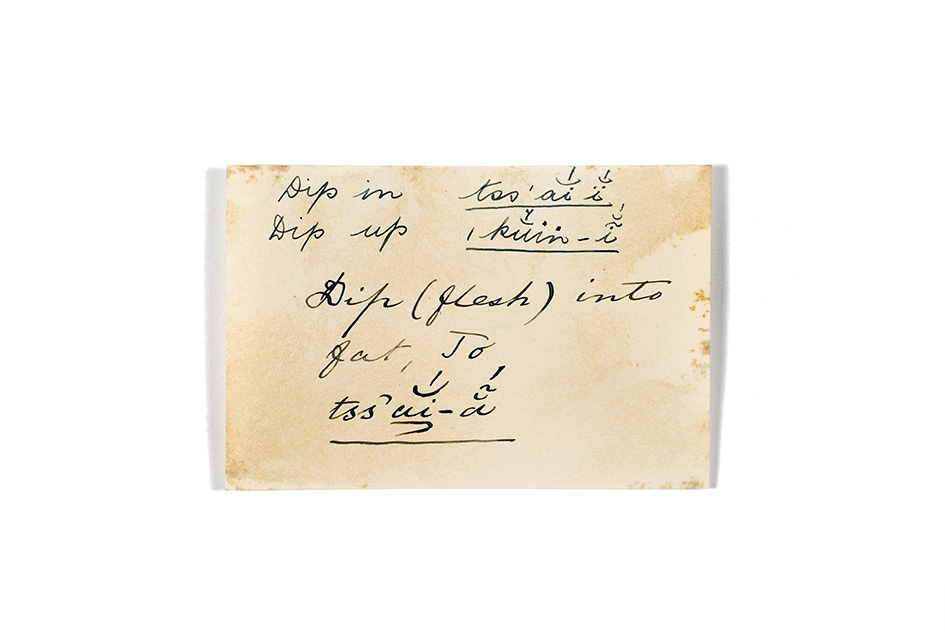 Dip in tss'aí̮ ĭ́
Dip up ‚kŭin-ĭ̃́
Dip (flesh) into
fat, To
tss'aí̮-ắ̃